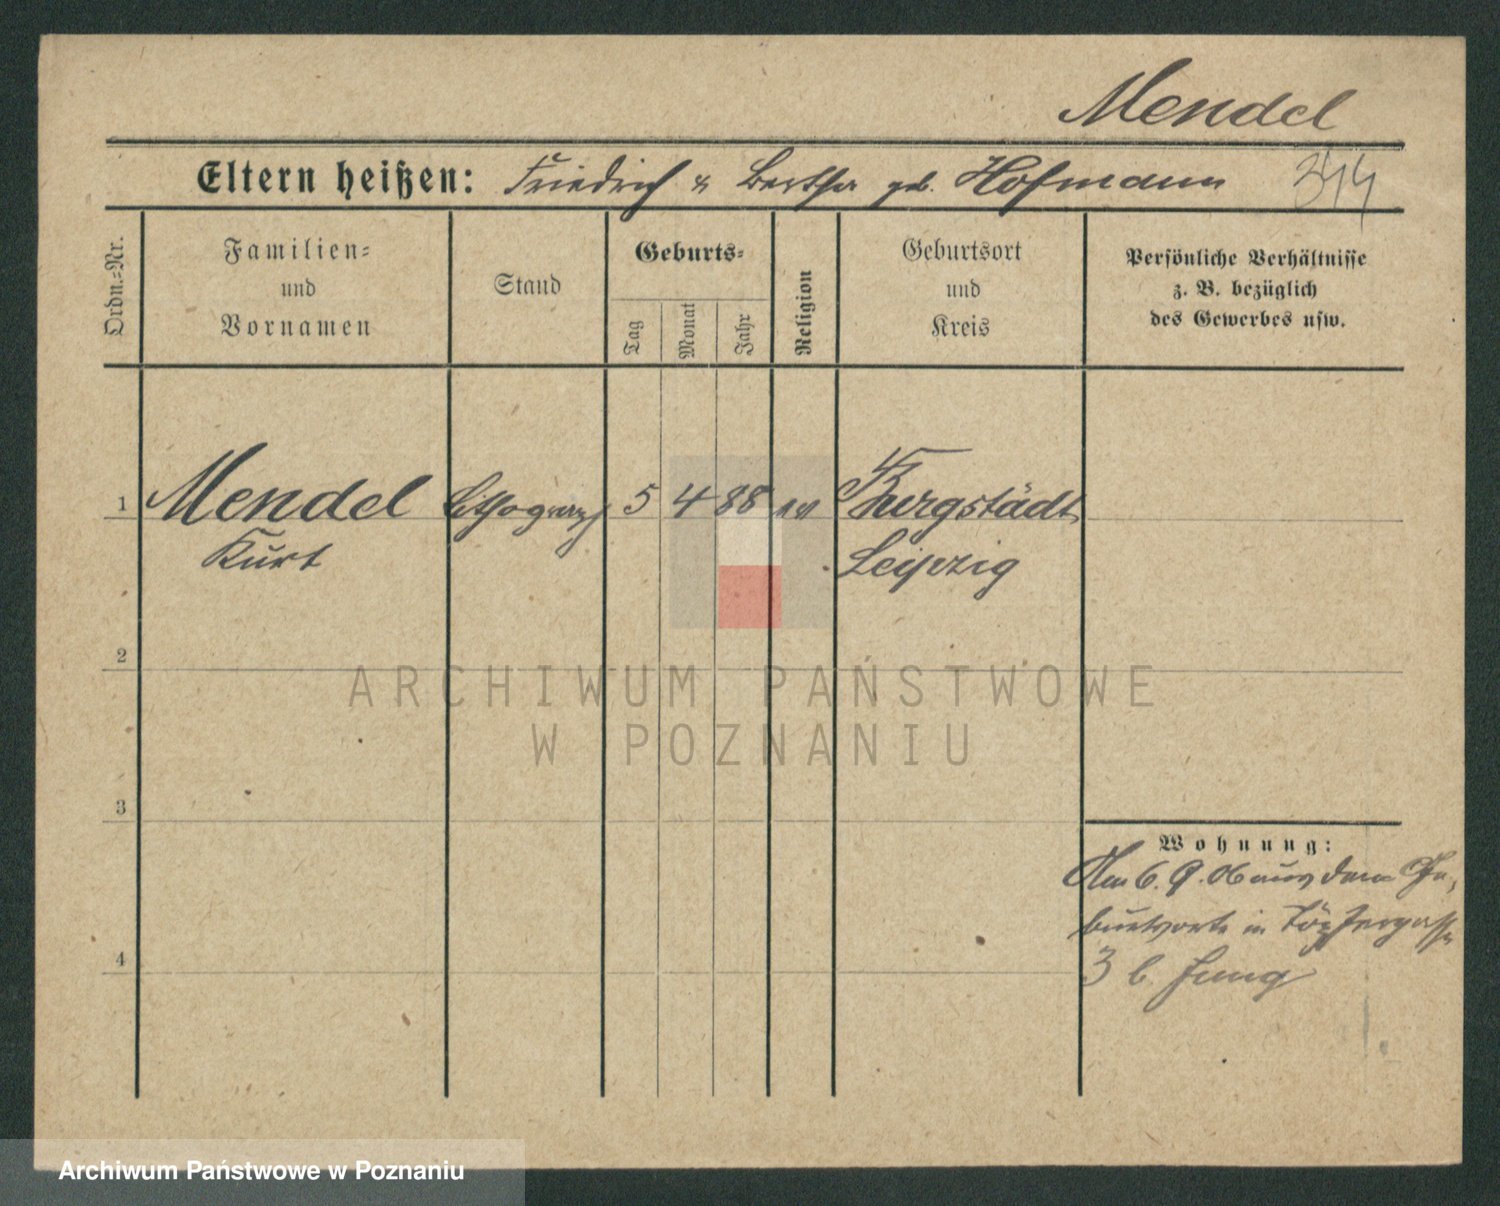 Mendel
Eltern heißen: Friedrich & Bertha geb. Hofmann 344
Ordn.=Nr.
Familien=
und
Vornamen
Stand
Geburts=
Tag
Monat
Jahr
Religion
Geburtsort
und
Kreis
Persönliche Verhältnisse
z. B. bezüglich
des Gewerbes usw.
1 Mendel Lithograph 5 4 88 ev Burgstädt
Kurt Leipzig
2
3
4
Wohnung:
Am 6. 9. 06 aus dem Ge-
burtsorte in Töpfergasse
3 b. Jung
ARCHIWUM PAŃSTWOWE
W POZNANIU
Archiwum Państwowe w Poznaniu